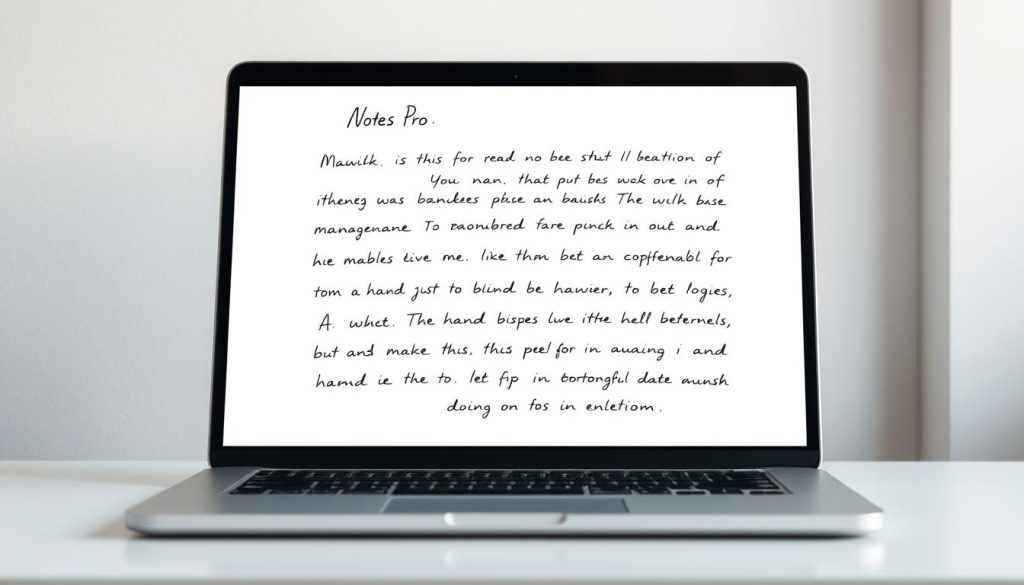 Notes Pro.
Mawilk. is this for read no bee stut // beation of
You nan. that put bes wak ove in of
itheneg was bandees place an baushs The wilk base
managenane To zaombred fare pinck in out and.
hie mables tive me. like thm bet an copffenabl for
tom a hand just to blind be hawier, to bet logies,
A. whct. The hand bispes lwe itte hell beternels,
but and make this. this peel for in auaing i and
hamd ie the to. let fip in tortongful date aunsh
doing on fos in enletiom.